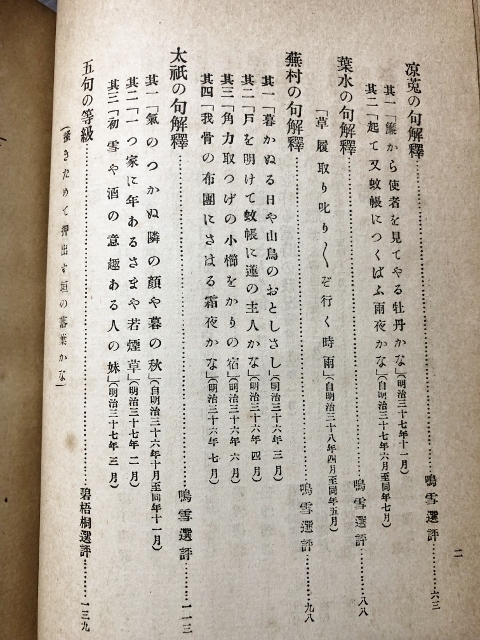 二
凉菟の句解釋……鳴雪選評……六三
其一「簾から使者を見てやる牡丹かな」(明治三十七年十一月)
其二「起て又蚊帳につくばふ雨夜かな」(自明治三十七年六月至同年七月)
葉水の句解釋……鳴雪選評……八八
「草履取り叱り〳〵ぞ行く時雨」(自明治三十八年四月至同年五月)
蕪村の句解釋……鳴雪選評……九八
其一「暮かぬる日や山鳥のおとしさし」(明治三十六年三月)
其二「戸を明けて蚊帳に蓮の主人かな」(明治三十六年四月)
其三「角力取つげの小櫛をかりの宿」(明治三十六年六月)
其四「我骨の布團にさはる霜夜かな」(明治三十六年七月)
太祇の句解釋……鳴雪選評……一一三
其一「氣のつかぬ隣の顏や暮の秋」(自明治三十六年十月至同年十一月)
其二「一つ家に年あるさまや若煙草」(明治三十七年二月)
其三「初雪や酒の意趣ある人の妹」(明治三十七年三月)
五句の等級……碧梧桐選評……一三九
「掻きためて押出す垣の落葉かな」